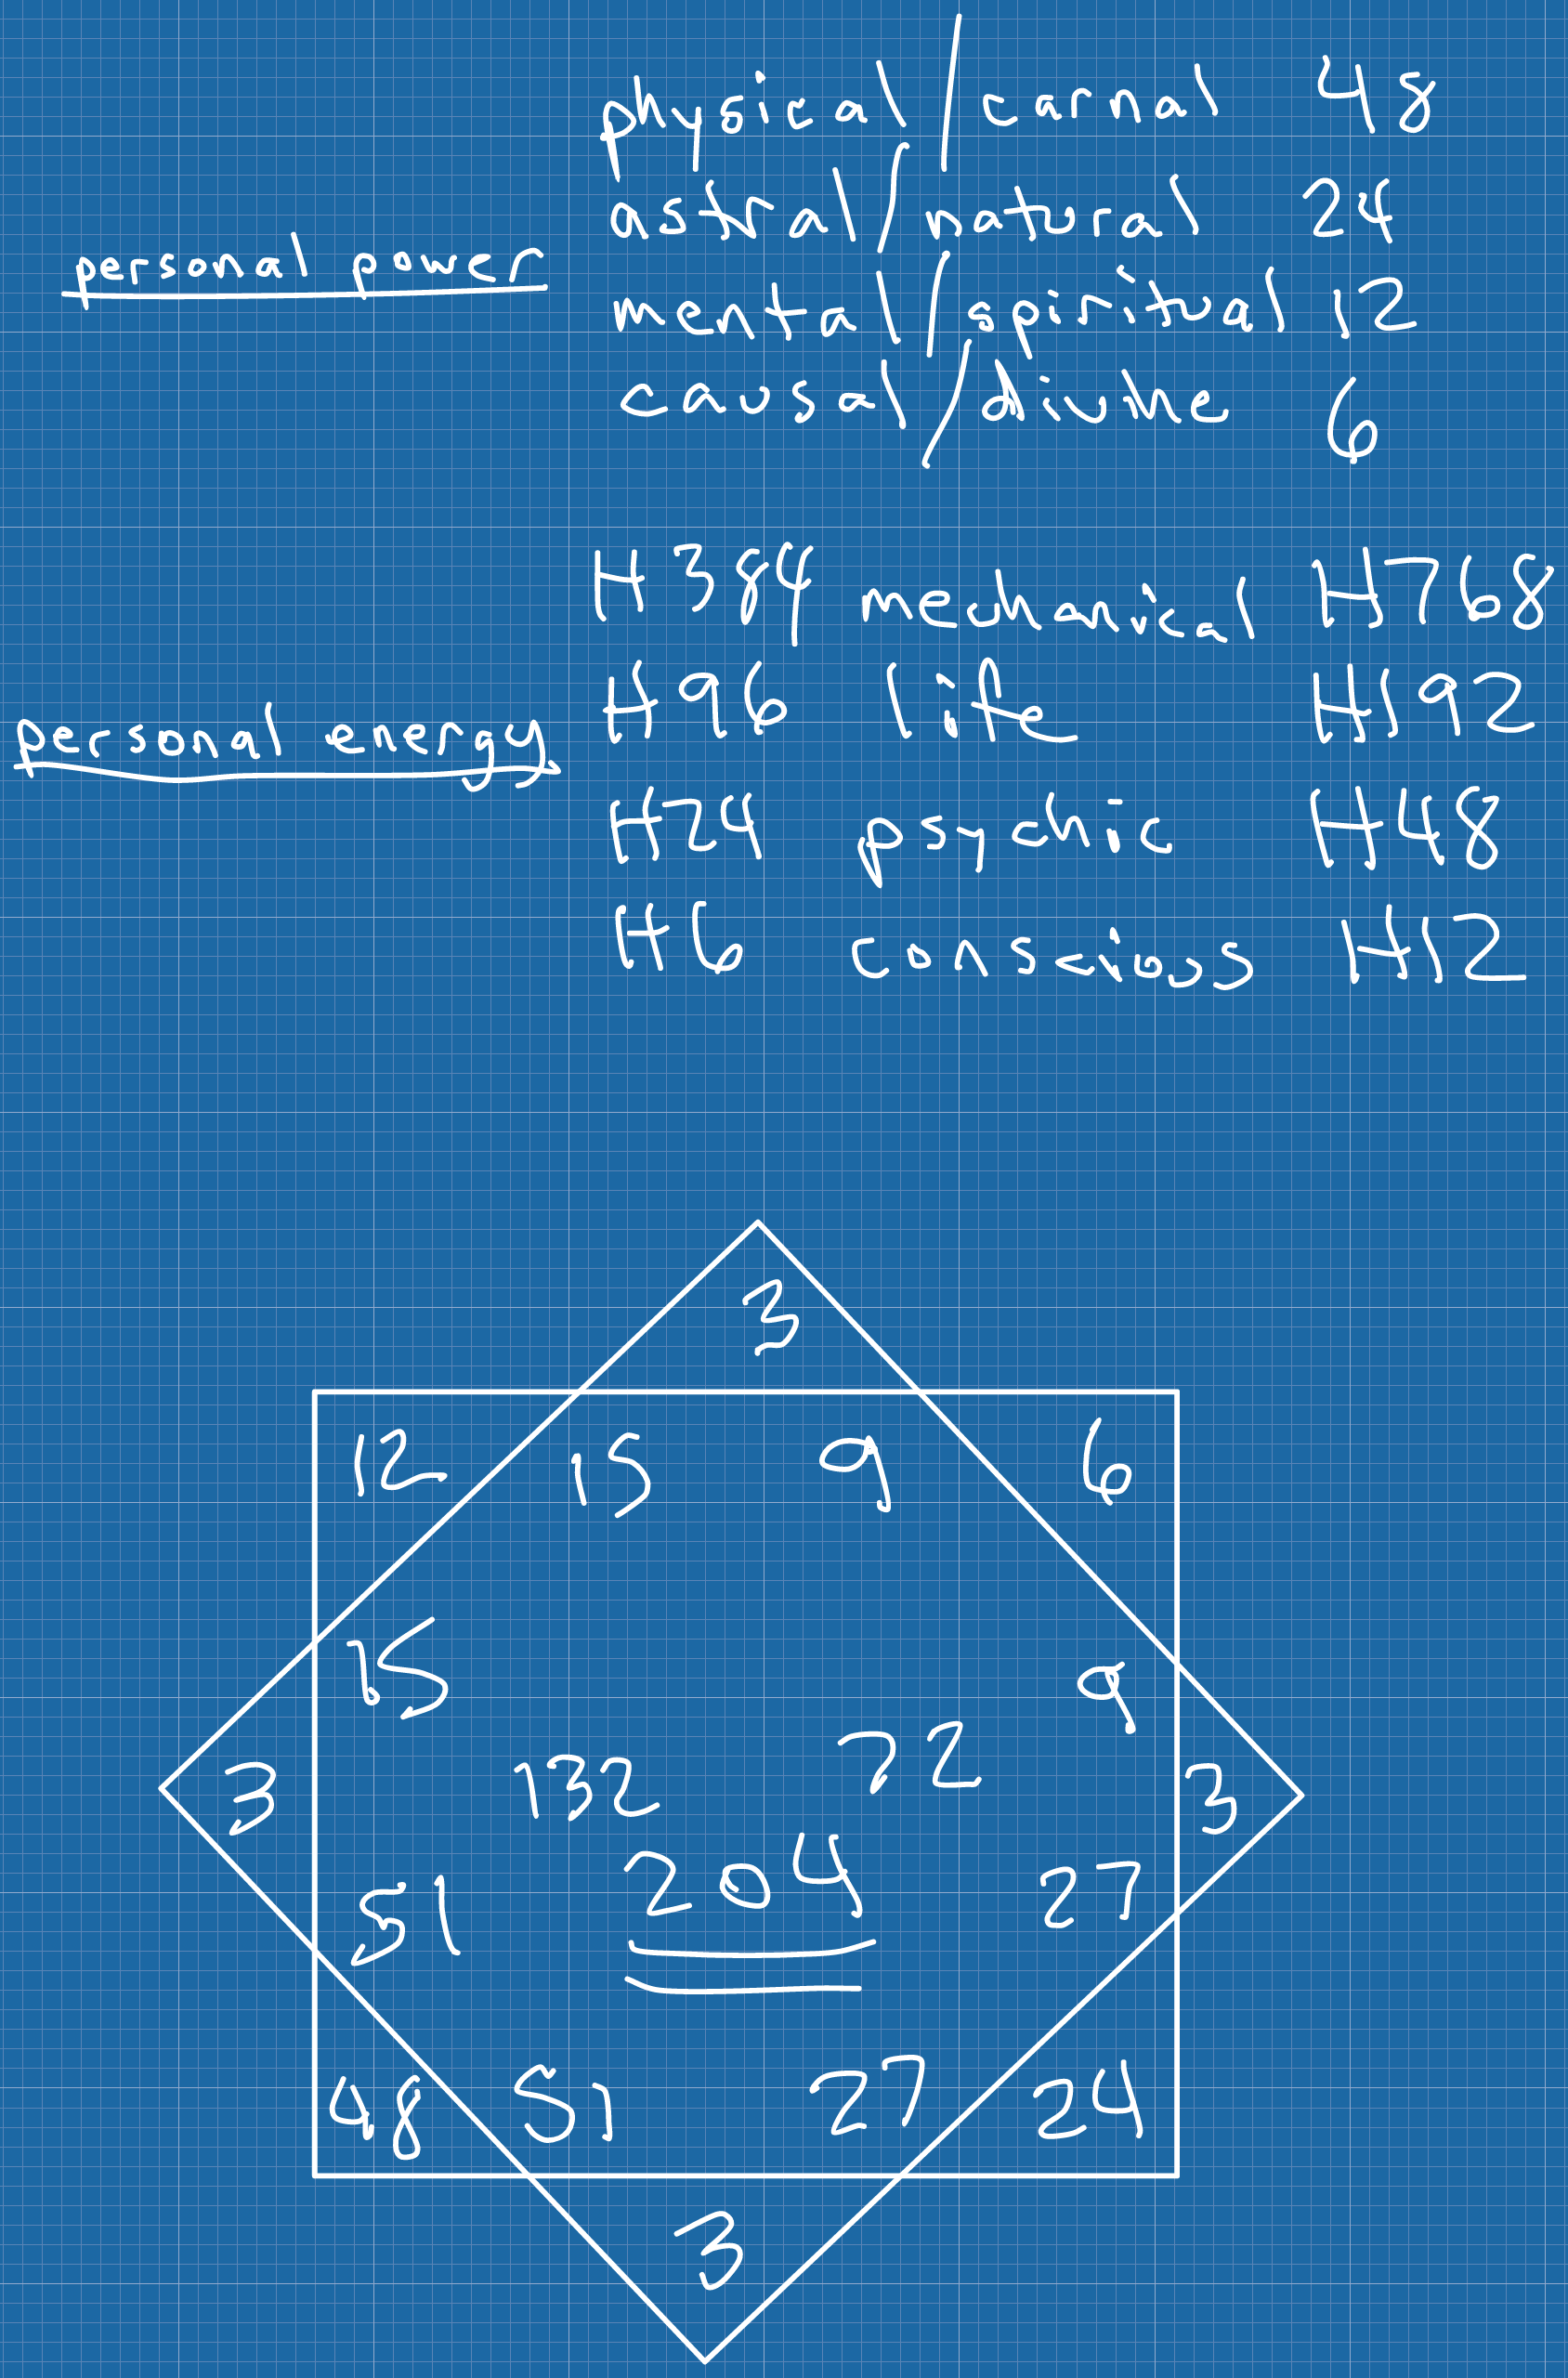 physical/carnal 48
astral/natural 24
personal power
mental/spiritual 12
causal/divine 6
H384 mechanical H768
H96 life H192
personal energy
H24 psychic H48
H6 conscious H12
3
12 15 9 6
15 9
3 132 72 3
51 204 27
48 51 27 24
3